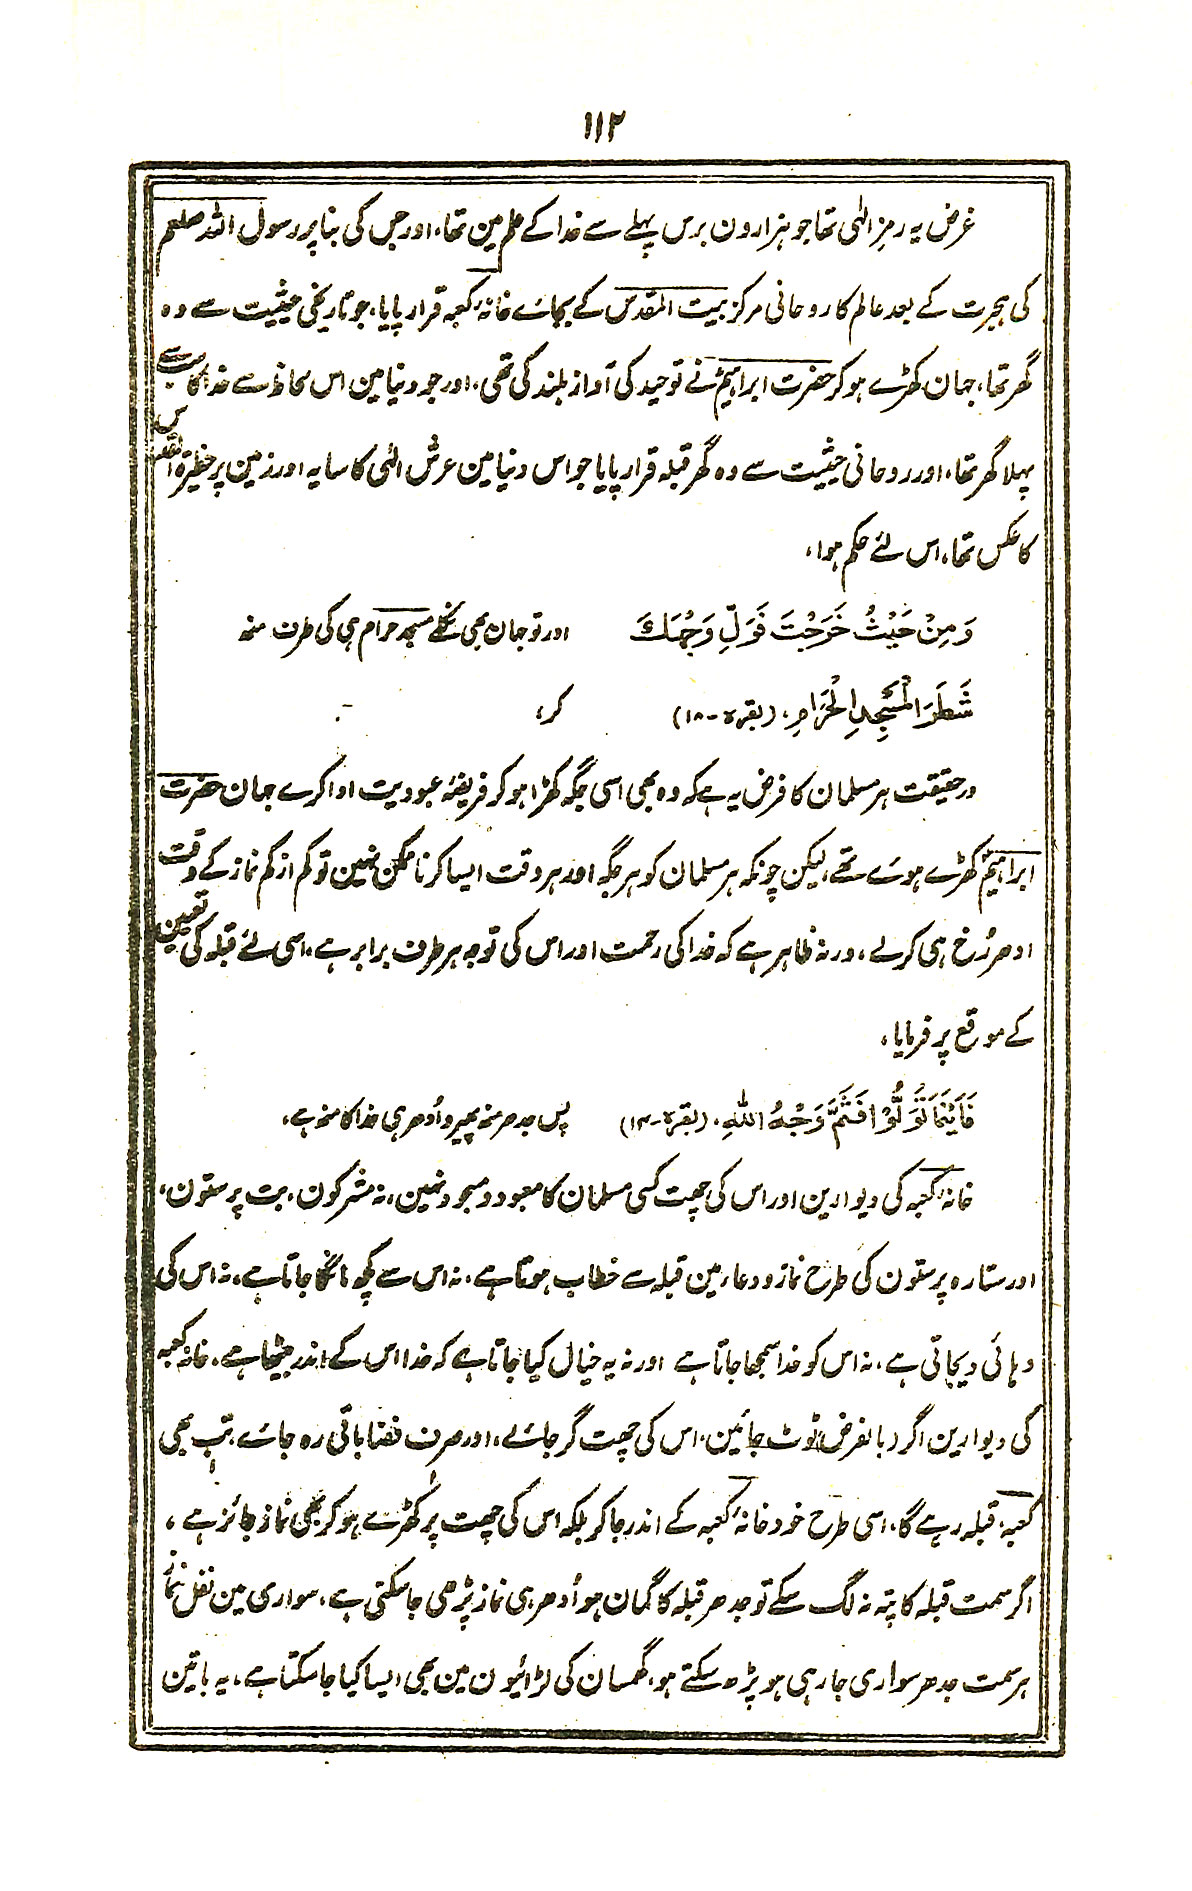 ۱۱۲
غرض یہ رمز الٰہی تھا جو ہزارون برس پہلے سے خدا کے علم مین تھا، اور جس کی بنا پر رسول اللہ صلعم
کی ہجرت کے بعد عالم کا روحانی مرکز بیت المقدس کے بجائے خانۂ کعبہ قرار پایا، جو تاریخی حیثیت سے وہ
گھر تھا، جہان کھڑے ہو کر حضرت ابراہیمؑ نے توحید کی آواز بلند کی تھی، اور جو دنیا مین اس لحاظ سے خدا کا سب سے
پہلا گھر تھا، اور روحانی حیثیت سے وہ گھر قبلہ قرار پایا جو اس دنیا مین عرش الٰہی کا سایہ اور زمین پر حظیرۃ القدس
کا عکس تھا، اس لئے حکم ہوا،
وَمِنْ حَيْثُ خَرَجْتَ فَوَلِّ وَجْهَكَ اور تو جہان بھی نکلے مسجد حرام ہی کی طرف منہ
شَطْرَ الْمَسْجِدِ الْحَرَامِ، (بقرہ-۱۸) کر،
درحقیقت ہر مسلمان کا فرض یہ ہے کہ وہ بھی اسی جگہ کھڑا ہو کر فریضۂ عبودیت ادا کرے جہان حضرت
ابراہیمؑ کھڑے ہوئے تھے، لیکن چونکہ ہر مسلمان کو ہر جگہ اور ہر وقت ایسا کرنا ممکن نہین تو کم از کم نماز کے وقت
ادھر رُخ ہی کر لے، ورنہ ظاہر ہے کہ خدا کی رحمت اور اس کی توجہ ہر طرف برابر ہے، اسی لئے قبلہ کی تعیین
کے موقع پر فرمایا،
فَاَيْنَمَا تُوَلُّوْا فَثَمَّ وَجْهُ اللهِ، (بقرہ-۱۴) پس جدھر منہ پھیرو اُدھر ہی خدا کا منہ ہے،
خانۂ کعبہ کی دیوارین اور اس کی چھت کسی مسلمان کا معبود و مسجود نہین، نہ مشرکون، بت پرستون،
اور ستارہ پرستون کی طرح نماز و دعا مین قبلہ سے خطاب ہوتا ہے، نہ اس سے کچھ مانگا جاتا ہے، نہ اس کی
دہائی دیجاتی ہے، نہ اس کو خدا سمجھا جاتا ہے اور نہ یہ خیال کیا جاتا ہے کہ خدا اس کے اندر بیٹھا ہے، خانہ کعبہ
کی دیوارین اگر (بالفرض) ٹوٹ جائین، اس کی چھت گر جائے، اور صرف فضا باقی رہ جائے، تب بھی
کعبہ، قبلہ رہے گا، اسی طرح خود خانۂ کعبہ کے اندر جا کر بلکہ اس کی چھت پر کھڑے ہو کر بھی نماز جائز ہے،
اگر سمت قبلہ کا پتہ نہ لگ سکے تو جدھر قبلہ کا گمان ہو اُدھر ہی نماز پڑھی جا سکتی ہے، سواری مین نفل نماز
ہر سمت جدھر سواری جا رہی ہو پڑھ سکتے ہو، گھمسان کی لڑائیون مین بھی ایسا کیا جا سکتا ہے، یہ باتین